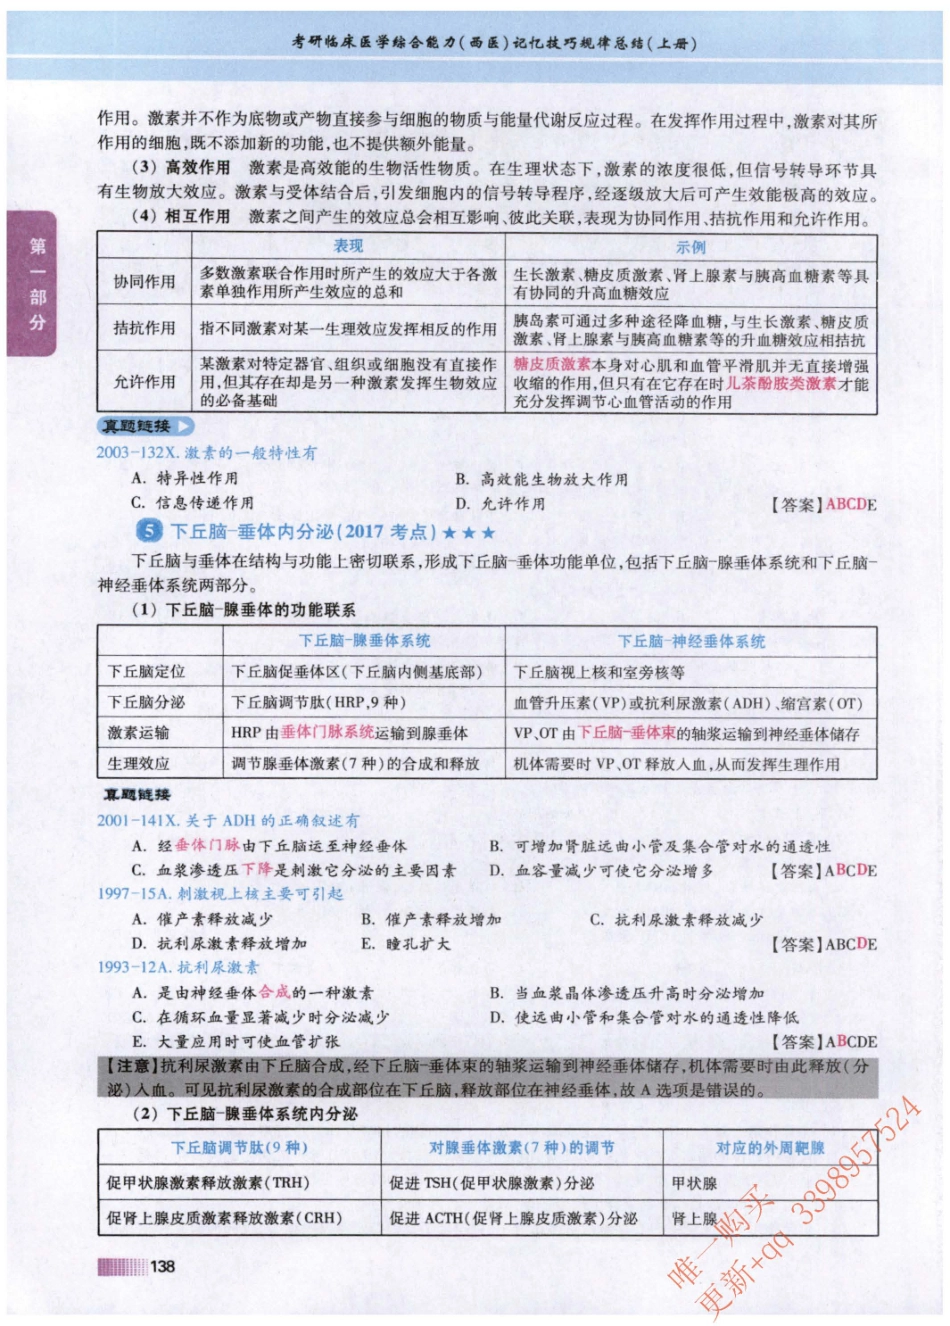 考研临床医学综合能力(西医)记忆技巧规律总结(上册)
作用。激素并不作为底物或产物直接参与细胞的物质与能量代谢反应过程。在发挥作用过程中,激素对其所
作用的细胞,既不添加新的功能,也不提供额外能量。
(3) 高效作用 激素是高效能的生物活性物质。在生理状态下,激素的浓度很低,但信号转导环节具
有生物放大效应。激素与受体结合后,引发细胞内的信号转导程序,经逐级放大后可产生效能极高的效应。
(4) 相互作用 激素之间产生的效应总会相互影响、彼此关联,表现为协同作用、拮抗作用和允许作用。
第一部分
表现 示例
协同作用 多数激素联合作用时所产生的效应大于各激 生长激素、糖皮质激素、肾上腺素与胰高血糖素等具
素单独作用所产生效应的总和 有协同的升高血糖效应
拮抗作用 指不同激素对某一生理效应发挥相反的作用 胰岛素可通过多种途径降血糖,与生长激素、糖皮质
激素、肾上腺素与胰高血糖素等的升血糖效应相拮抗
某激素对特定器官、组织或细胞没有直接作 糖皮质激素本身对心肌和血管平滑肌并无直接增强
允许作用 用,但其存在却是另一种激素发挥生物效应 收缩的作用,但只有在它存在时儿茶酚胺类激素才能
的必备基础 充分发挥调节心血管活动的作用
真题链接
2003-132X. 激素的一般特性有
A. 特异性作用 B. 高效能生物放大作用
C. 信息传递作用 D. 允许作用 【答案】ABCDE
5 下丘脑-垂体内分泌(2017 考点)★★★
下丘脑与垂体在结构与功能上密切联系,形成下丘脑-垂体功能单位,包括下丘脑-腺垂体系统和下丘脑-
神经垂体系统两部分。
(1) 下丘脑-腺垂体的功能联系
下丘脑-腺垂体系统 下丘脑-神经垂体系统
下丘脑定位 下丘脑促垂体区(下丘脑内侧基底部) 下丘脑视上核和室旁核等
下丘脑分泌 下丘脑调节肽(HRP,9 种) 血管升压素(VP)或抗利尿激素(ADH)、缩宫素(OT)
激素运输 HRP 由垂体门脉系统运输到腺垂体 VP、OT 由下丘脑-垂体束的轴浆运输到神经垂体储存
生理效应 调节腺垂体激素(7 种)的合成和释放 机体需要时 VP、OT 释放入血,从而发挥生理作用
真题链接
2001-141X. 关于 ADH 的正确叙述有
A. 经垂体门脉由下丘脑运至神经垂体 B. 可增加肾脏远曲小管及集合管对水的通透性
C. 血浆渗透压下降是刺激它分泌的主要因素 D. 血容量减少可使它分泌增多 【答案】ABCDE
1997-15A. 刺激视上核主要可引起
A. 催产素释放减少 B. 催产素释放增加 C. 抗利尿激素释放减少
D. 抗利尿激素释放增加 E. 瞳孔扩大 【答案】ABCDE
1993-12A. 抗利尿激素
A. 是由神经垂体合成的一种激素 B. 当血浆晶体渗透压升高时分泌增加
C. 在循环血量显著减少时分泌减少 D. 使远曲小管和集合管对水的通透性降低
E. 大量应用时可使血管扩张 【答案】ABCDE
【注意】抗利尿激素由下丘脑合成,经下丘脑-垂体束的轴浆运输到神经垂体储存,机体需要时由此释放(分
泌)入血。可见抗利尿激素的合成部位在下丘脑,释放部位在神经垂体,故 A 选项是错误的。
(2) 下丘脑-腺垂体系统内分泌
下丘脑调节肽(9 种) 对腺垂体激素(7 种)的调节 对应的外周靶腺
促甲状腺激素释放激素(TRH) 促进 TSH(促甲状腺激素)分泌 甲状腺
促肾上腺皮质激素释放激素(CRH) 促进 ACTH(促肾上腺皮质激素)分泌 肾上腺
138
唯一购买
更新+qq 3398957524